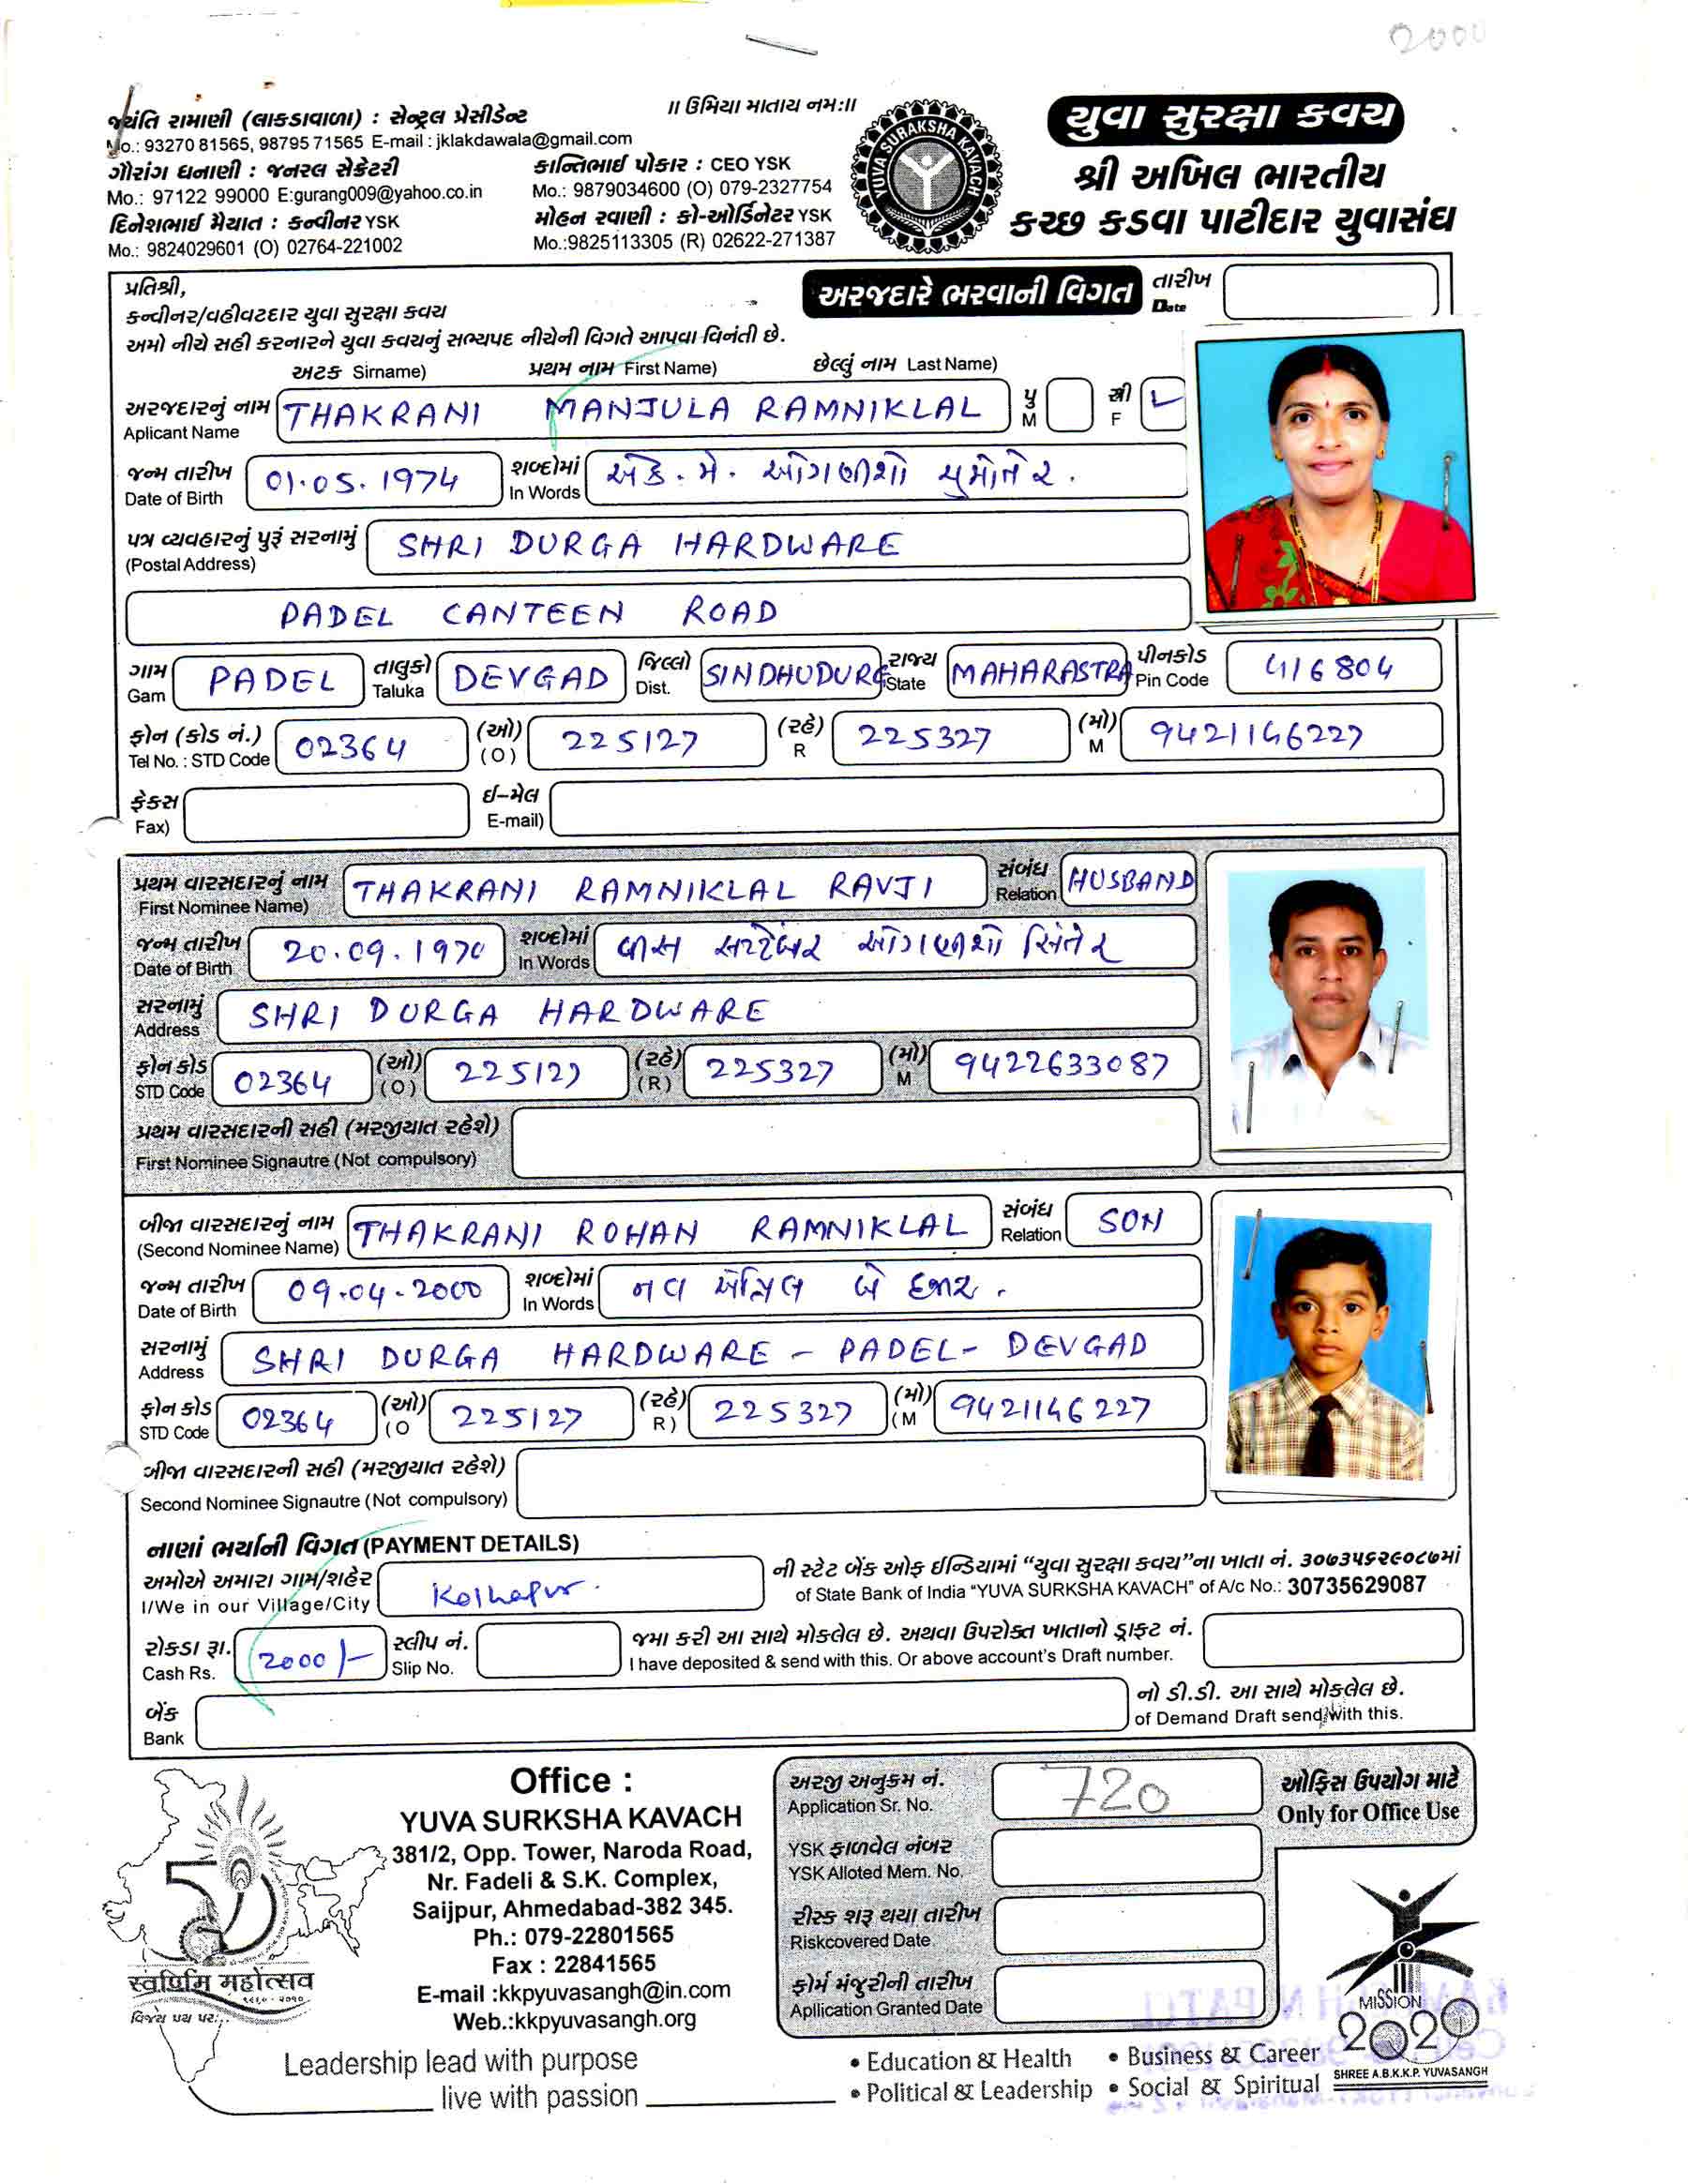 2000
॥ ઉમિયા માતાય નમ:॥
જયંતિ રામાણી (લાકડાવાળા) : સેન્ટ્રલ પ્રેસીડેન્ટ
Mo.: 93270 81565, 98795 71565 E-mail : jklakdawala@gmail.com
ગૌરાંગ ધનાણી : જનરલ સેક્રેટરી
Mo.: 97122 99000 E:gurang009@yahoo.co.in
દિનેશભાઈ મૈયાત : કન્વીનર YSK
Mo.: 9824029601 (O) 02764-221002
કાન્તિભાઈ પોકાર : CEO YSK
Mo.: 9879034600 (O) 079-2327754
મોહન રવાણી : કો-ઓર્ડિનેટર YSK
Mo.:9825113305 (R) 02622-271387
YUVA SURAKSHA KAVACH
યુવા સુરક્ષા કવચ
શ્રી અખિલ ભારતીય
કચ્છ કડવા પાટીદાર યુવાસંઘ
પ્રતિશ્રી,
અરજદારે ભરવાની વિગત
તારીખ Date
કન્વીનર/વહીવટદાર યુવા સુરક્ષા કવચ
અમો નીચે સહી કરનારને યુવા કવચનું સભ્યપદ નીચેની વિગતે આપવા વિનંતી છે.
અટક Sirname) પ્રથમ નામ First Name) છેલ્લું નામ Last Name)
અરજદારનું નામ Aplicant Name THAKRANI MANJULA RAMNIKLAL પુ M સ્ત્રી F
જન્મ તારીખ Date of Birth 01.05.1974 શબ્દોમાં In Words એક. મે. ઓગણીશો ચુમોતેર.
પત્ર વ્યવહારનું પુરૂં સરનામું (Postal Address) SHRI DURGA HARDWARE
PADEL CANTEEN ROAD
ગામ Gam PADEL તાલુકો Taluka DEVGAD જિલ્લો Dist. SINDHUDURG રાજ્ય State MAHARASTRA પીનકોડ Pin Code 416804
ફોન (કોડ નં.) Tel No. : STD Code 02364 (ઓ) (O) 225127 (રહે) R 225327 (મો) M 9421146227
ફેક્સ Fax) ઈ-મેલ E-mail)
પ્રથમ વારસદારનું નામ First Nominee Name) THAKRANI RAMNIKLAL RAVJI સંબંધ Relation HUSBAND
જન્મ તારીખ Date of Birth 20.09.1970 શબ્દોમાં In Words વીસ સપ્ટેંબર ઓગણીશો સિતેર
સરનામું Address SHRI DURGA HARDWARE
ફોન કોડ STD Code 02364 (ઓ) (O) 225127 (રહે) (R) 225327 (મો) M 9422633087
પ્રથમ વારસદારની સહી (મરજીયાત રહેશે)
First Nominee Signautre (Not compulsory)
બીજા વારસદારનું નામ (Second Nominee Name) THAKRANI ROHAN RAMNIKLAL સંબંધ Relation SON
જન્મ તારીખ Date of Birth 09.04.2000 શબ્દોમાં In Words નવ એપ્રિલ બે હજાર.
સરનામું Address SHRI DURGA HARDWARE - PADEL- DEVGAD
ફોન કોડ STD Code 02364 (ઓ) (O 225127 (રહે) R) 225327 (મો) (M 9421146227
બીજા વારસદારની સહી (મરજીયાત રહેશે)
Second Nominee Signautre (Not compulsory)
નાણાં ભર્યાની વિગત (PAYMENT DETAILS)
અમોએ અમારા ગામ/શહેર I/We in our Village/City Kolhapur.
ની સ્ટેટ બેંક ઓફ ઈન્ડિયામાં “યુવા સુરક્ષા કવચ”ના ખાતા નં. ૩૦૭૩૫૬૨૯૦૮૭માં
of State Bank of India "YUVA SURKSHA KAVACH" of A/c No.: 30735629087
રોકડા રૂા. Cash Rs. 2000/- સ્લીપ નં. Slip No.
જમા કરી આ સાથે મોકલેલ છે. અથવા ઉપરોક્ત ખાતાનો ડ્રાફ્ટ નં.
I have deposited & send with this. Or above account's Draft number.
બેંક Bank
નો ડી.ડી. આ સાથે મોકલેલ છે.
of Demand Draft send with this.
स्वर्णिम महोत्सव
Office :
YUVA SURKSHA KAVACH
381/2, Opp. Tower, Naroda Road,
Nr. Fadeli & S.K. Complex,
Saijpur, Ahmedabad-382 345.
Ph.: 079-22801565
Fax : 22841565
E-mail :kkpyuvasangh@in.com
Web.:kkpyuvasangh.org
અરજી અનુક્રમ નં. Application Sr. No. 720
ઓફિસ ઉપયોગ માટે
Only for Office Use
YSK ફાળવેલ નંબર
YSK Alloted Mem. No.
રીસ્ક શરૂ થયા તારીખ
Riskcovered Date
ફોર્મ મંજુરીની તારીખ
Apllication Granted Date
MISSION
2020
SHREE A.B.K.K.P. YUVASANGH
Leadership lead with purpose
live with passion
• Education & Health • Business & Career
• Political & Leadership • Social & Spiritual